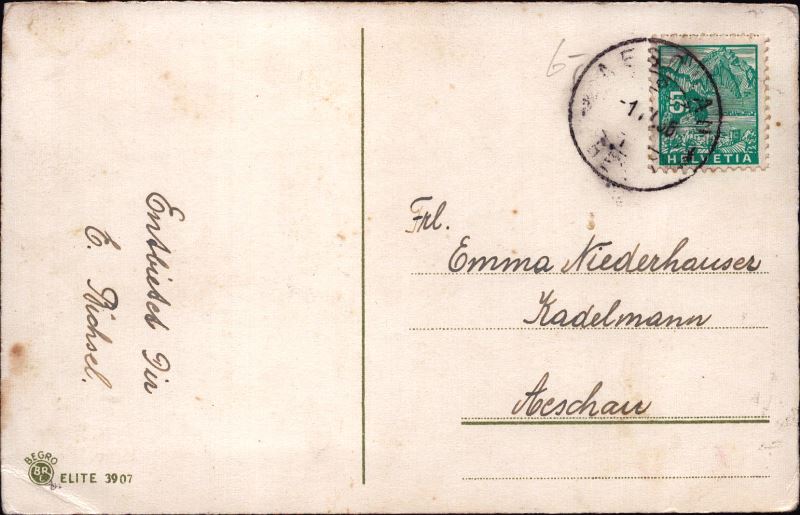 Entbietet Dir
E. Bichsel.
BEGRO
BR
ELITE 3907
6-
5
HELVETIA
Frl.
Emma Niederhauser
Kadelmann
Aeschau